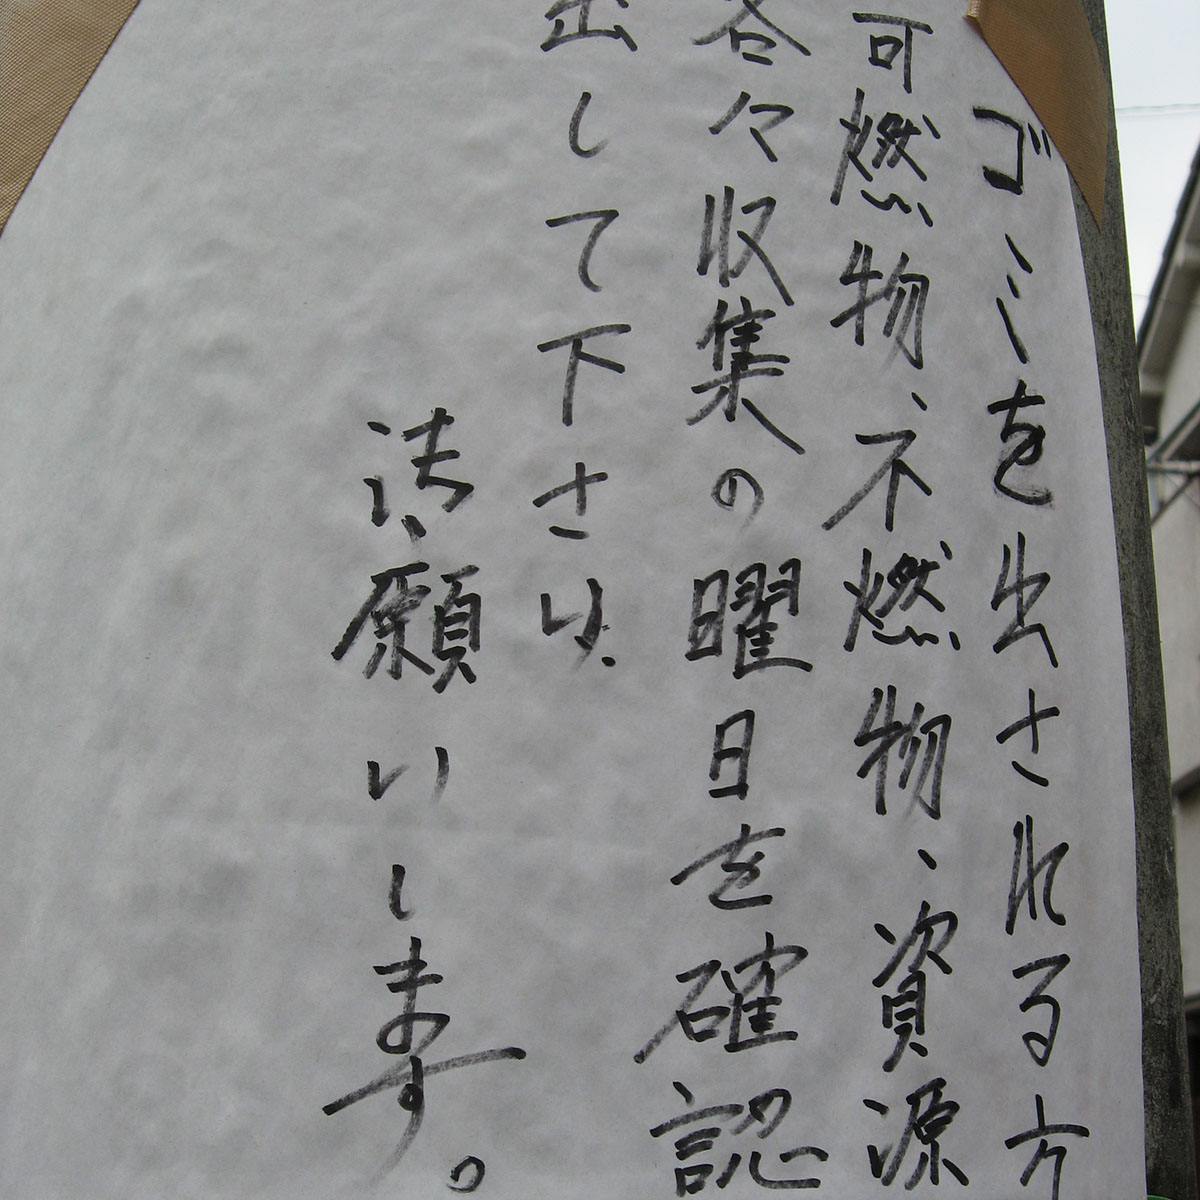 ゴミを出される方
可燃物、不燃物、資源
各々収集の曜日を確認
出して下さい、
願いします。